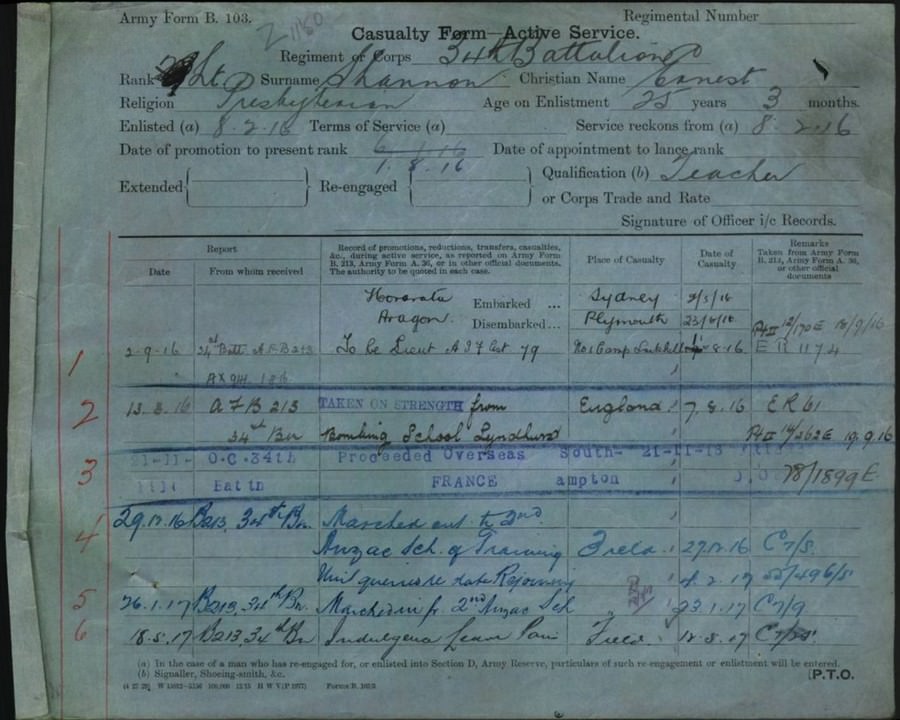 Army Form B. 103.
Regimental Number
Casualty Form—Active Service.
Regiment or Corps 34th Battalion
Rank Lt. Surname Shannon Christian Name Ernest
Religion Presbyterian Age on Enlistment 25 years 3 months.
Enlisted (a) 8.2.16 Terms of Service (a) Service reckons from (a) 8.2.16
Date of promotion to present rank 6.1.16 Date of appointment to lance rank
1.8.16
Qualification (b) Teacher
Extended Re-engaged
or Corps Trade and Rate
Signature of Officer i/c Records.
Report
Date From whom received
Record of promotions, reductions, transfers, casualties, &c., during active service, as reported on Army Form B. 213, Army Form A. 36, or in other official documents. The authority to be quoted in each case.
Place of Casualty
Date of Casualty
Remarks Taken from Army Form B. 213, Army Form A. 36, or other official documents
Embarked ... Sydney
Aragon. Disembarked... Plymouth 23/6/16
Pt II 12/170E 18/9/16
1
2-9-16 34th Batt A.F.B213 To be Lieut 8.16 ER 1174
2
13.8.16 AFB 213 TAKEN ON STRENGTH from England 7.8.16 ER 61
34th Bn Bombing School Lyndhurst Pt II 14/262E 19.9.16
3
21-11- O.C.34th Proceeded Overseas South- 21-11-16
Battn FRANCE ampton 78/1899E
4
29.12.16 B213 34th Bn. Marched out to 2nd
Anzac Sch. of Training Field 27.12.16 C7/5
Unit queried re date Rejoining 4.2.17 55/496/5
5
26.1.17 B213, 34th Bn. Marched in fr. 2nd Anzac Sch " 23.1.17 C7/9
6
18.5.17 B213, 34th Bn Leave Field 12.5.17
(a) In the case of a man who has re-engaged for, or enlisted into Section D, Army Reserve, particulars of such re-engagement or enlistment will be entered.
(b) Signaller, Shoeing-smith, &c.
[P.T.O.
Forms B. 103/3